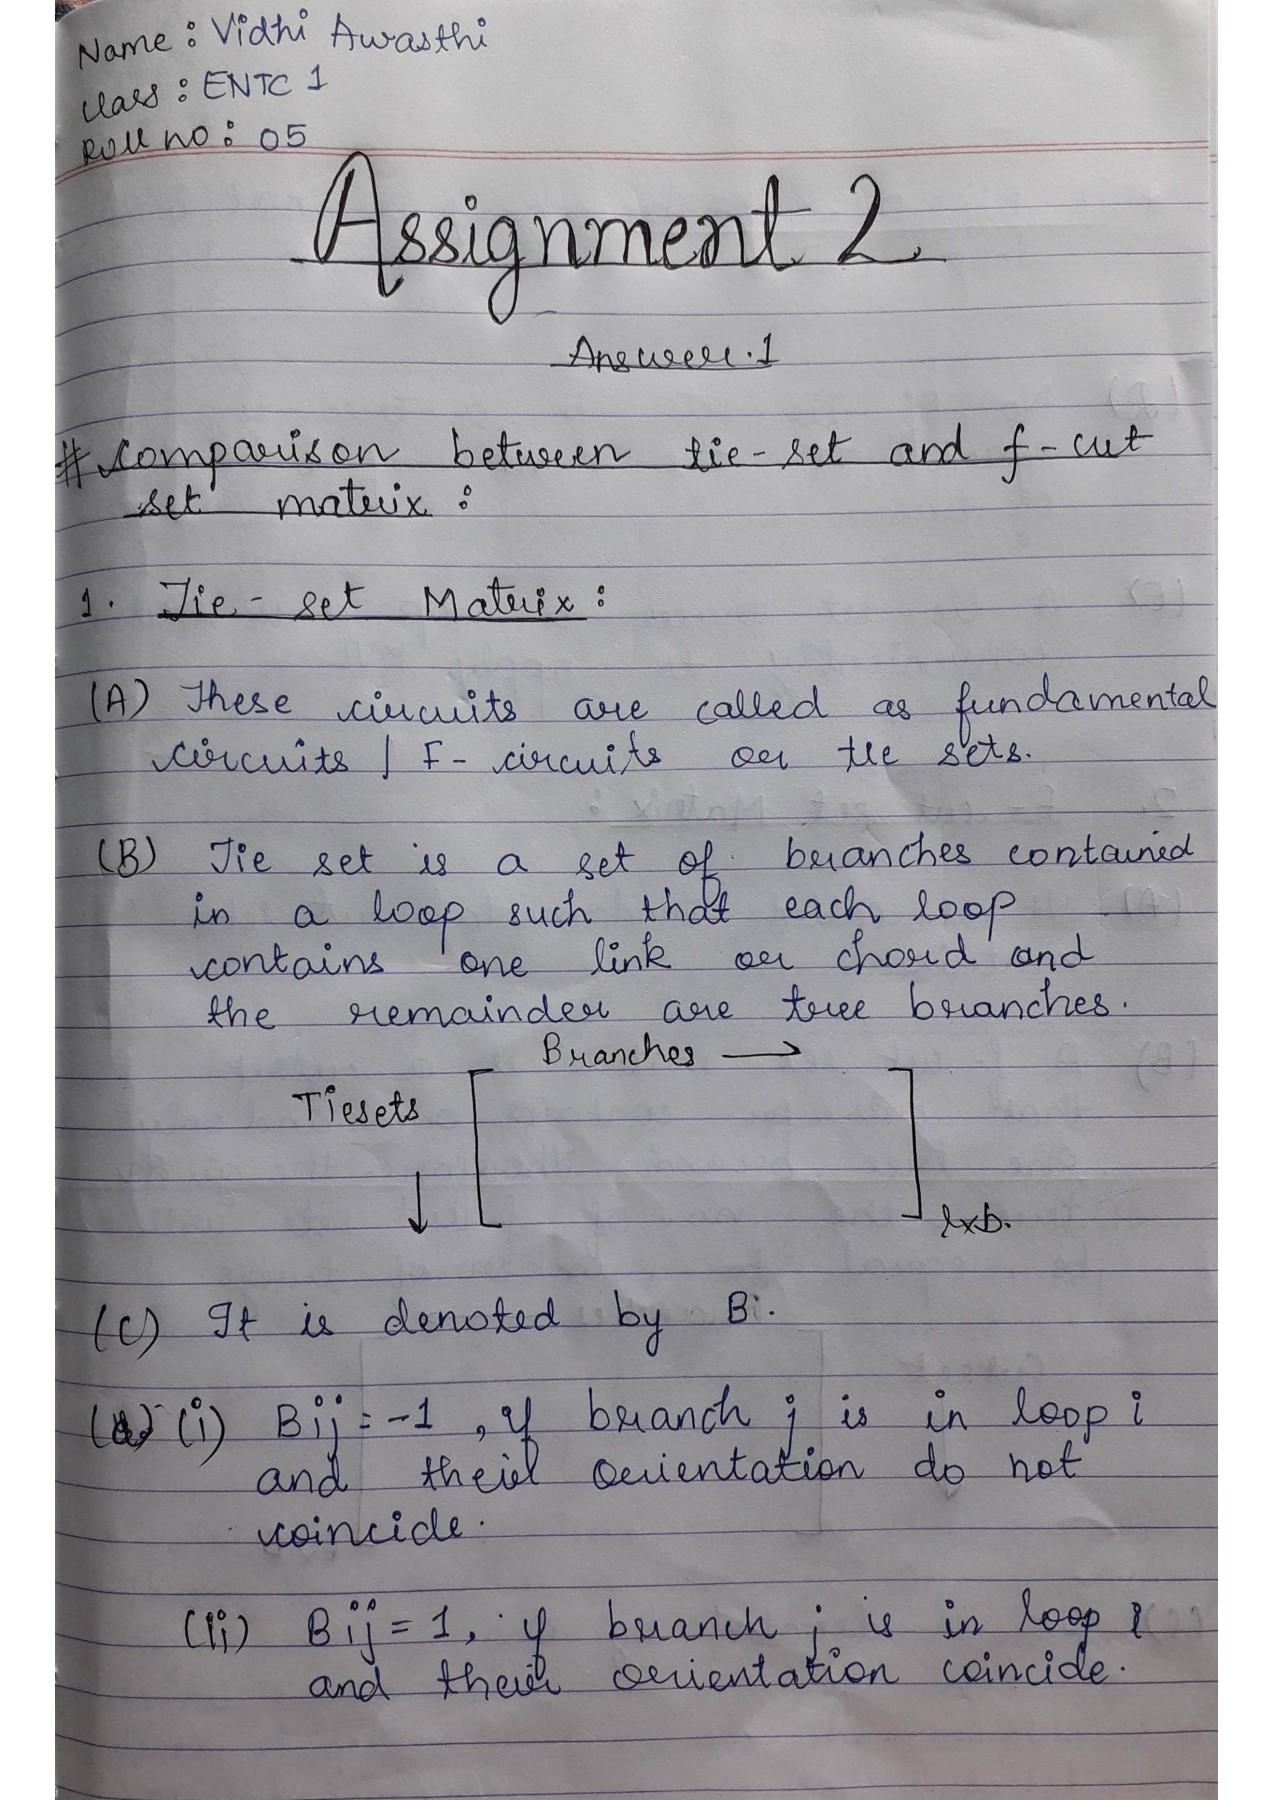 Name : Vidhi Awasthi
Class : ENTC 1
Roll no : 05
Assignment 2
Answer.1
# Comparison between tie-set and f-cut
set matrix :
1. Tie-set Matrix :
(A) These circuits are called as fundamental
circuits | F-circuits or tie sets.
(B) Tie set is a set of branches contained
in a loop such that each loop
contains one link or chord and
the remainder are tree branches.
Branches →
Tiesets
↓
lxb.
(C) It is denoted by B.
(i) Bij = -1, if branch j is in loop i
and their orientation do not
coincide.
(ii) Bij = 1, if branch j is in loop i
and their orientation coincide.